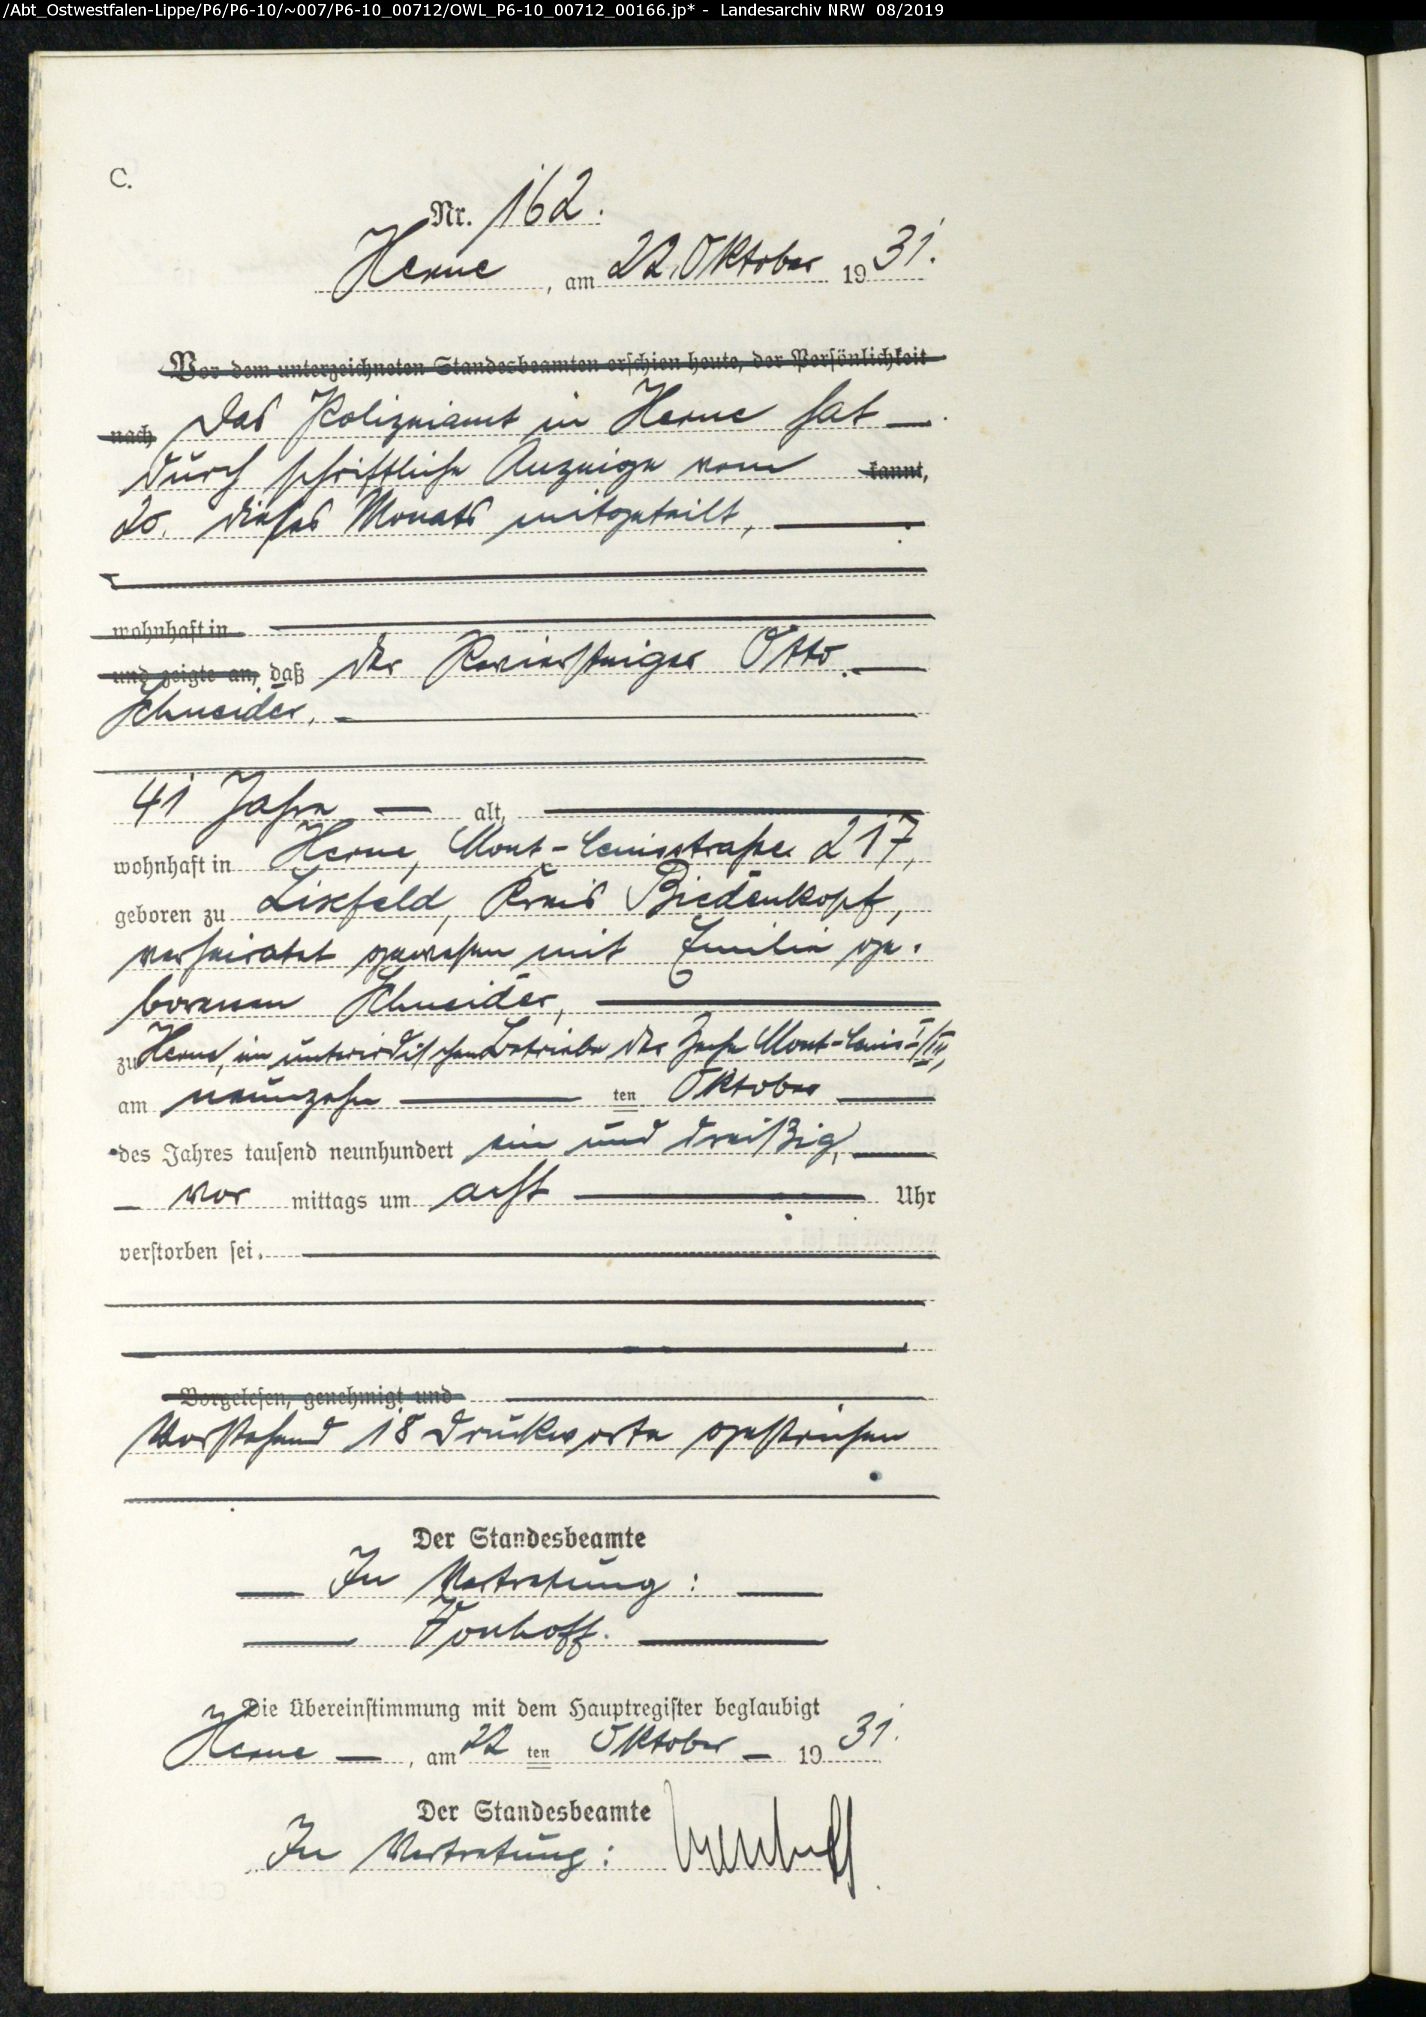 /Abt_Ostwestfalen-Lippe/P6/P6-10/~007/P6-10_00712/OWL_P6-10_00712_00166.jp* - Landesarchiv NRW 08/2019
C.
Nr. 162.
Herne, am 22. Oktober 1931.
Vor dem unterzeichneten Standesbeamten erschien heute, der Persönlichkeit
nach Das Polizeiamt in Herne hat
durch schriftliche Anzeige vom kannt,
20. dieses Monats mitgeteilt,
wohnhaft in
und zeigte an, daß der Reviersteiger Otto
Schneider,
41 Jahre alt,
wohnhaft in Herne, Mont-Cenisstraße 217,
geboren zu Lixfeld, Kreis Biedenkopf,
verheiratet gewesen mit Emilie ge-
borenen Schneider,
zu Herne, im unterirdischen Betriebe der Zeche Mont-Cenis I/III,
am neunzehn ten Oktober
des Jahres tausend neunhundert ein und dreißig,
vor mittags um acht Uhr
verstorben sei.
Vorgelesen, genehmigt und
Vorstehend 18 Druckworte gestrichen
Der Standesbeamte
In Vertretung:
Vonhoff.
Die Übereinstimmung mit dem Hauptregister beglaubigt
Herne, am 22 ten Oktober 1931.
Der Standesbeamte
In Vertretung: Vonhoff